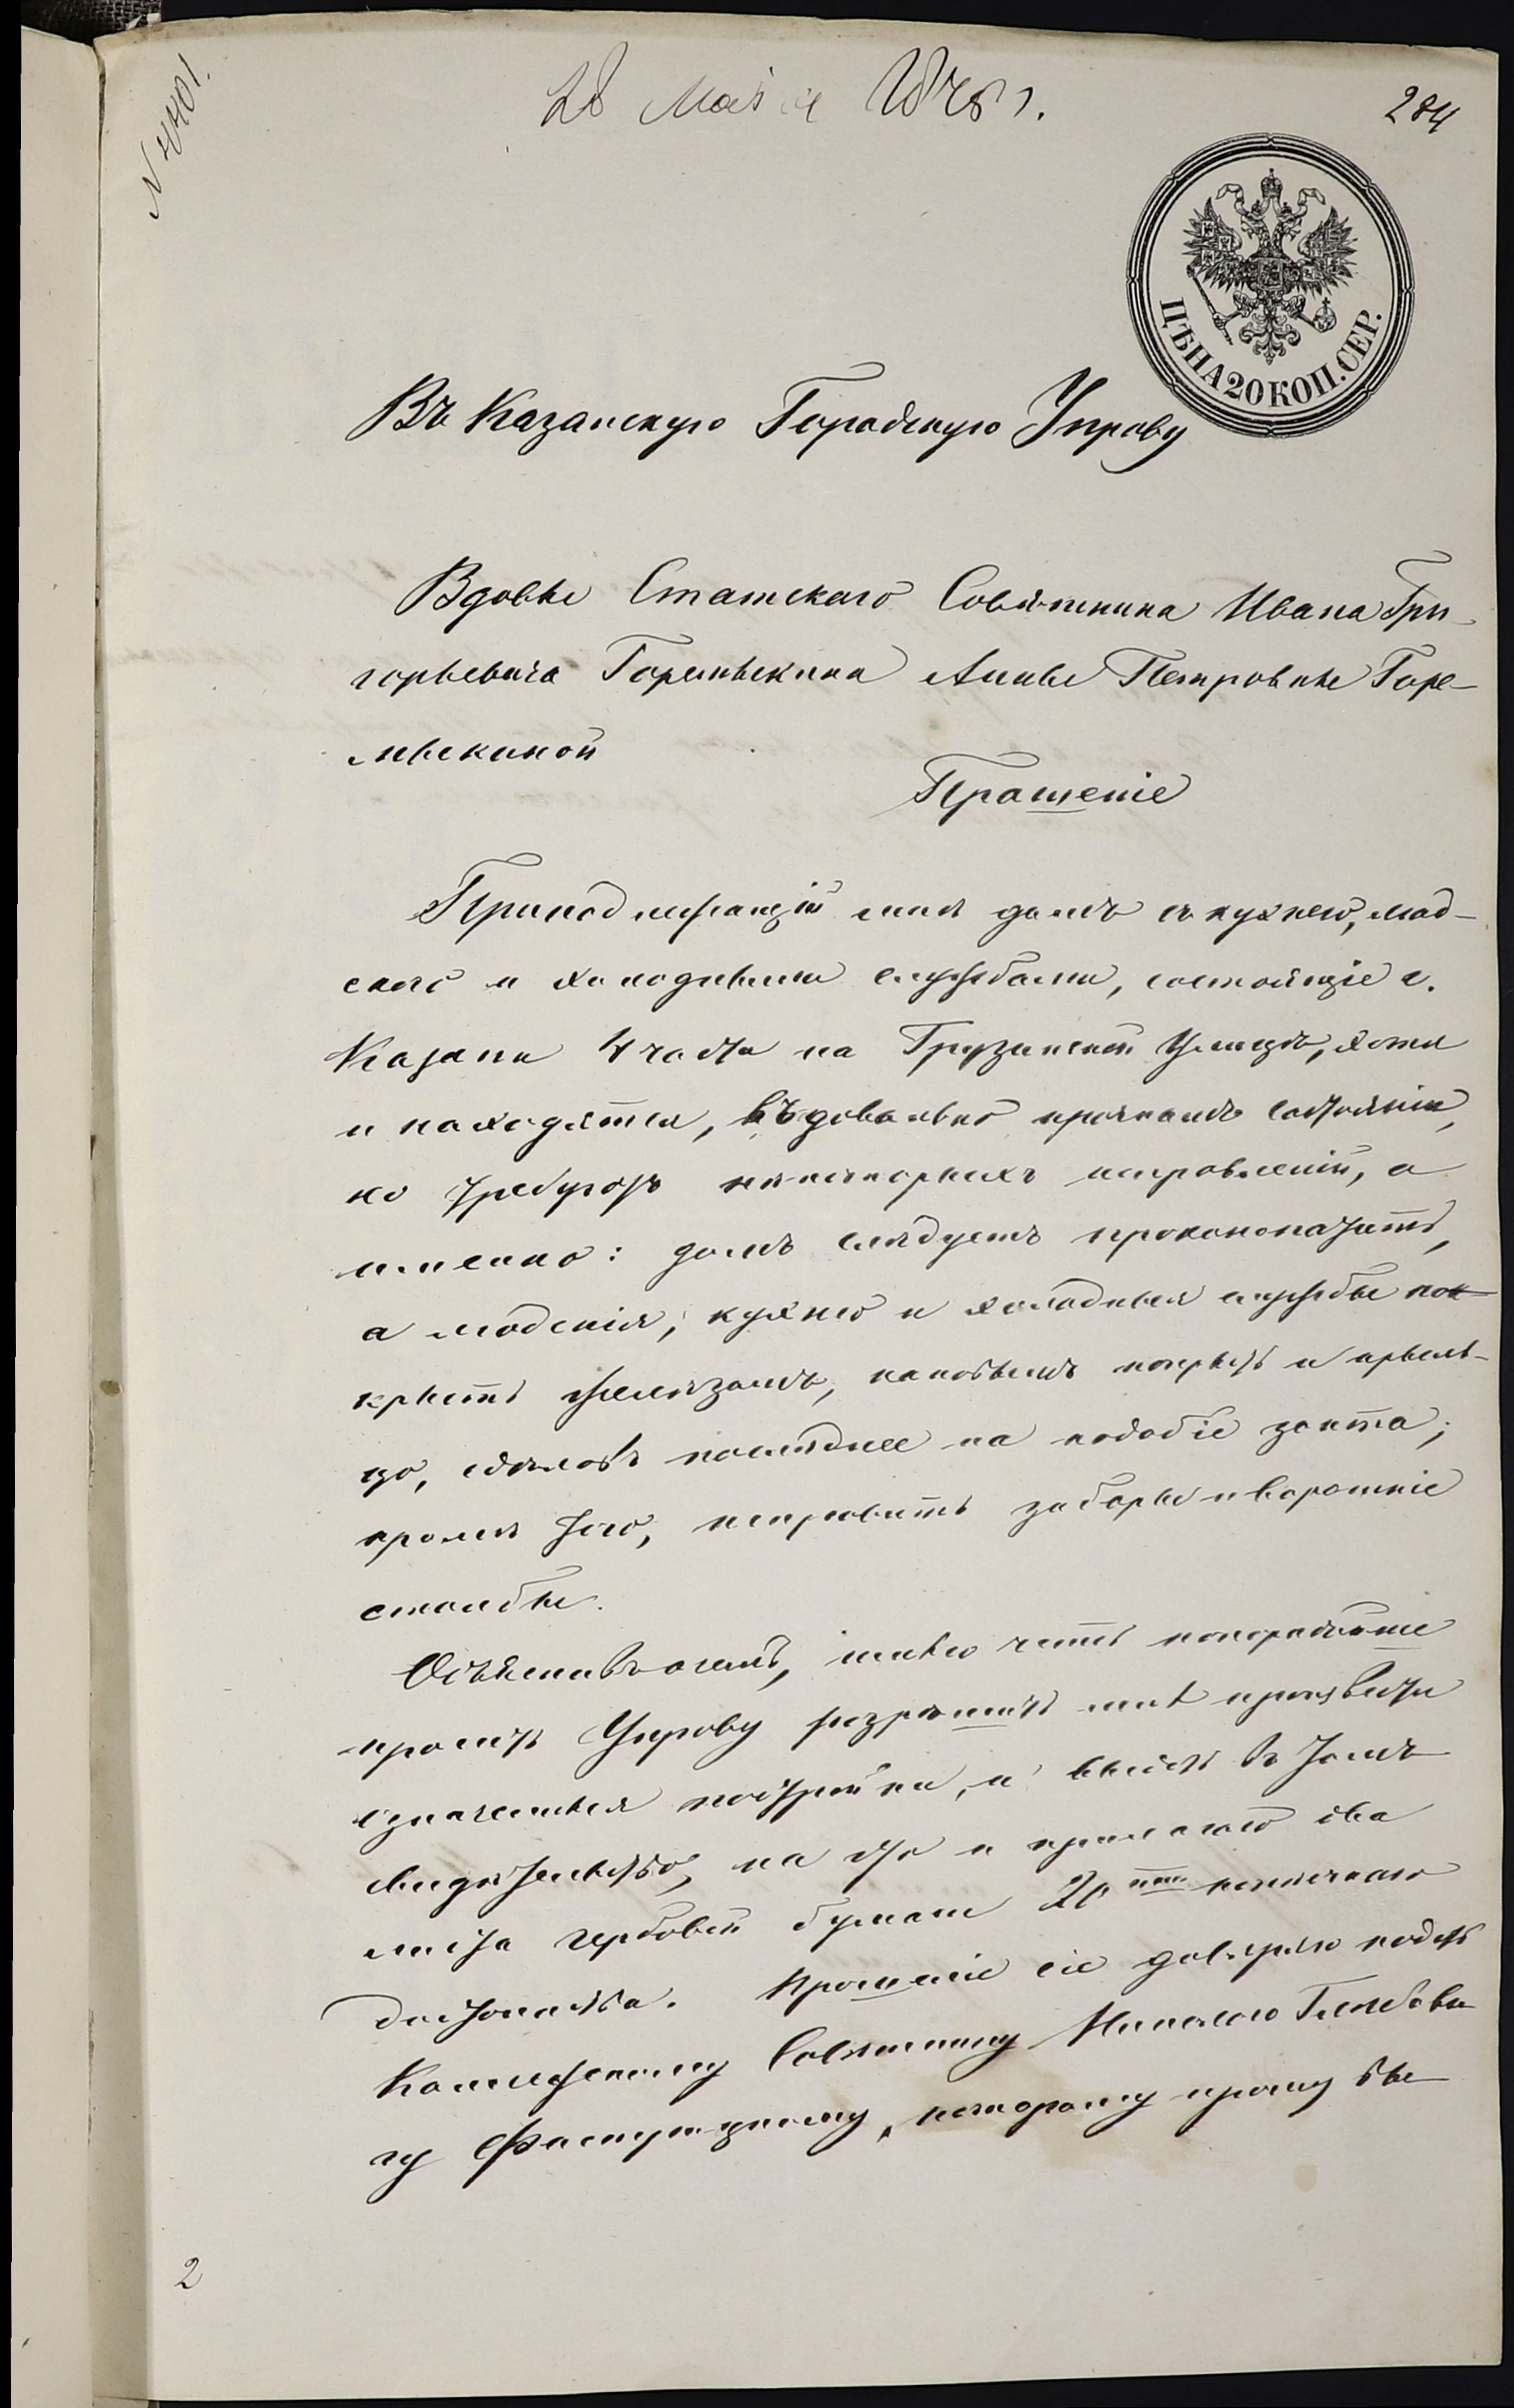 28 Мая 1876 г.
284
N 4401.
ЦѢНА 20 КОП. СЕР.
Въ Казанскую Городскую Управу
Вдовы Статскаго Совѣтника Ивана Гри-
горьевича Горемыкина Анны Петровны Горе-
мыкиной
Прошеніе
Принадлежащій мнѣ домъ съ кухнею, люд-
скою и холодными службами, состоящіе г.
Казани 4 части на Грузинской Улицѣ, хотя
и находятся, въ довольно прочномъ состояніи,
но требуютъ нѣкоторыхъ исправленій, а
именно: домъ слѣдуетъ проконопатить,
а людскія, кухню и холодныя службы пок-
крыть желѣзомъ, каковымъ покрыть и крыль-
цо, сдѣлавъ послѣднее на подобіе зонта;
кромѣ того, исправить заборы и воротніе
столбы.
Объясняя о семъ, имѣю честь покорнѣйше
просить Управу разрѣшить мнѣ произвести
означенныя постройки, и выдать въ томъ
свидѣтельство, на что и прилагаю два
листа гербовой бумаги 20ти копѣечнаго
достоинства. Прошеніе сіе довѣряю подать
Коллежскому Совѣтнику Николаю Глѣбови-
чу которому прошу вы
2